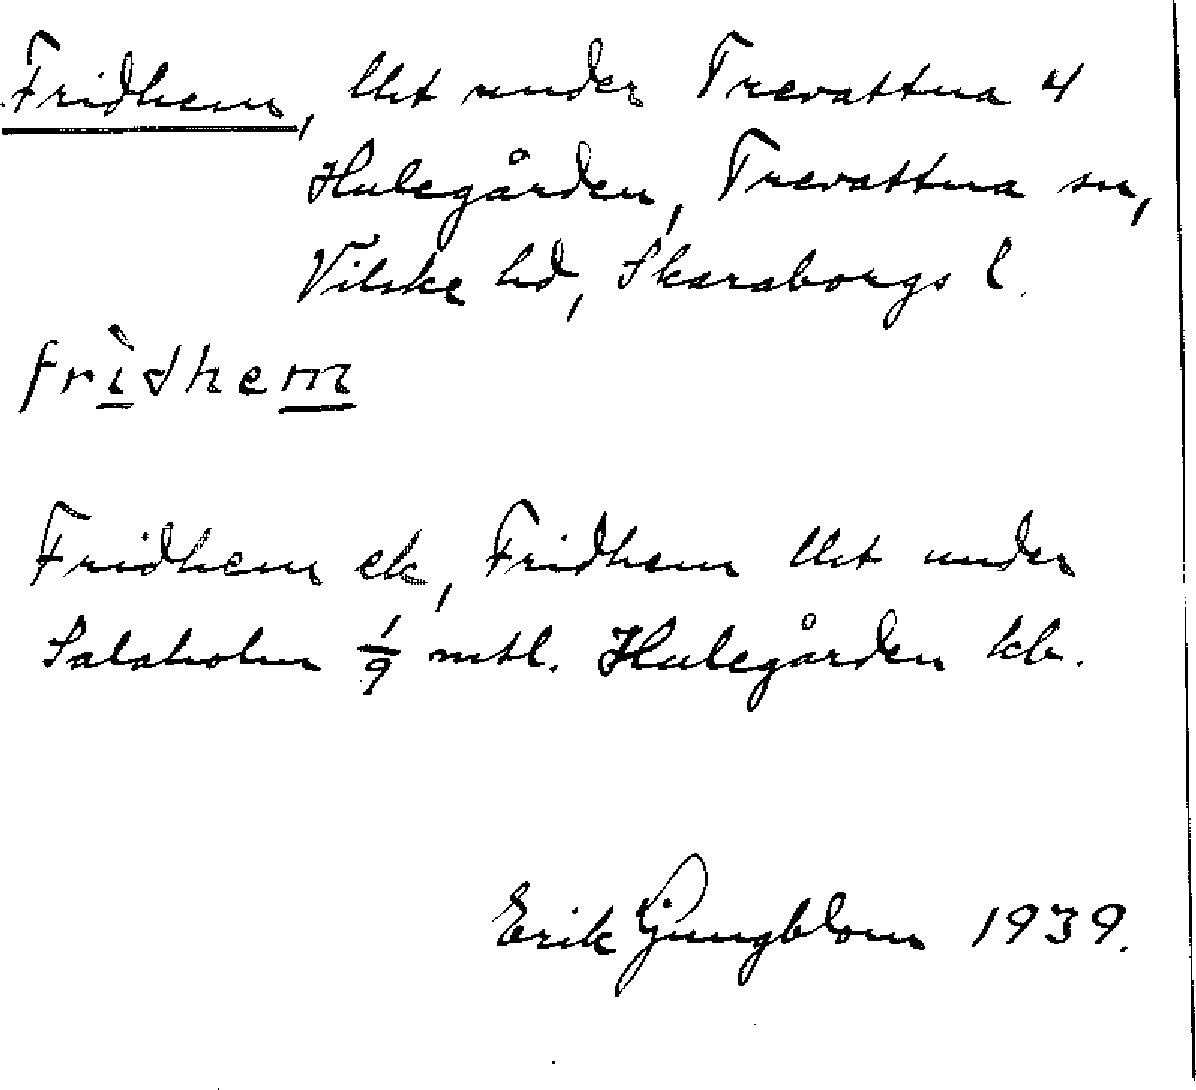 Fridhem, lht under Trevattna 4
Hulegården, Trevattna sn,
Vilske hd, Skaraborgs l.
frìdhem
Fridhem ek, Fridhem lht under
Salaholm 1/9 mtl. Hulegården kb.
Erik Ljungblom 1939.